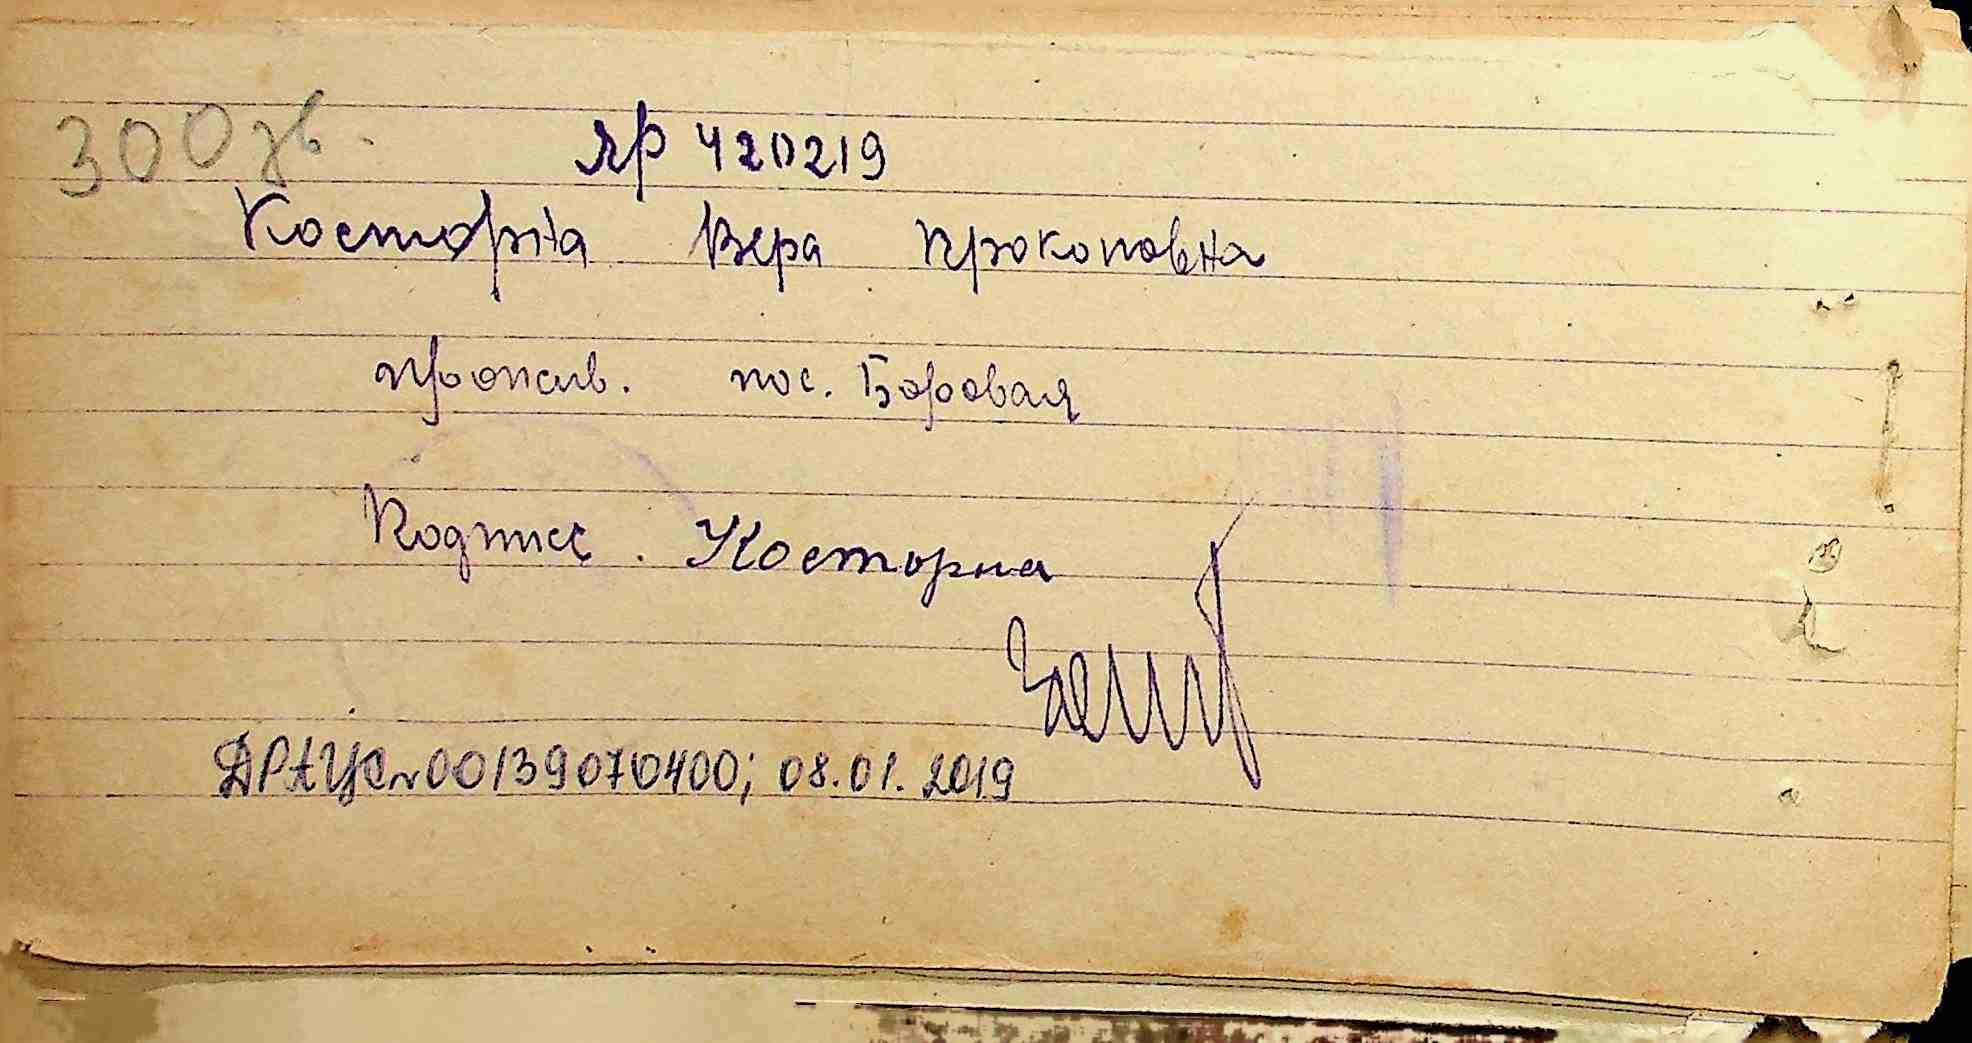 300 зв.
ЯР 420219
Косторна Вера Прокоповна
прожив. пос. Боровая
Подпись. Косторна
ДРАЦС №00139070400; 08.01.2019